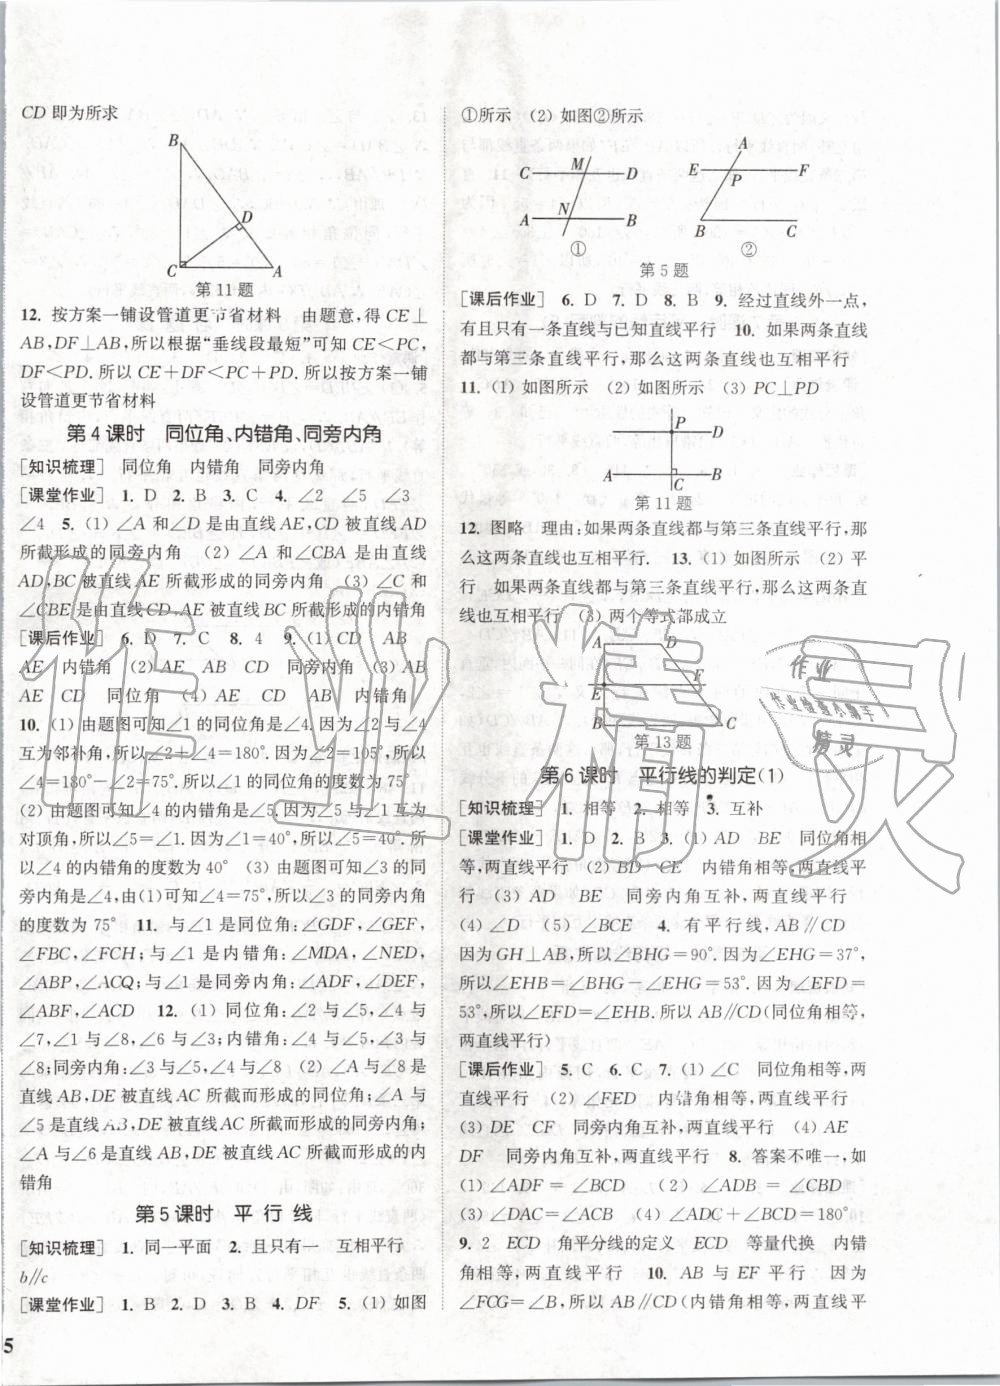 CD 即为所求
B
D
C
A
第11题
12. 按方案一铺设管道更节省材料　由题意,得 CE⊥
AB,DF⊥AB,所以根据“垂线段最短”可知 CE<PC,
DF<PD.所以 CE+DF<PC+PD.所以按方案一铺
设管道更节省材料
第4课时　同位角、内错角、同旁内角
[知识梳理]　同位角　内错角　同旁内角
[课堂作业]　1. D　2. B　3. C　4. ∠2　∠5　∠3
∠4　5. (1) ∠A 和∠D 是由直线 AE,CD 被直线 AD
所截形成的同旁内角　(2) ∠A 和∠CBA 是由直线
AD,BC 被直线 AE 所截形成的同旁内角　(3) ∠C 和
∠CBE 是由直线 CD,AE 被直线 BC 所截形成的内错角
[课后作业]　6. D　7. C　8. 4　9. (1) CD　AB
AE　内错角　(2) AE　AB　CD　同旁内角　(3) AB
AE　CD　同位角　(4) AE　CD　AB　内错角
10. (1) 由题图可知∠1 的同位角是∠4.因为∠2 与∠4
互为邻补角,所以∠2+∠4=180°.因为∠2=105°,所以
∠4=180°−∠2=75°.所以∠1 的同位角的度数为 75°
(2) 由题图可知∠4 的内错角是∠5.因为∠5 与∠1 互为
对顶角,所以∠5=∠1.因为∠1=40°,所以∠5=40°.所
以∠4 的内错角的度数为 40°　(3) 由题图可知∠3 的同
旁内角是∠4,由(1)可知∠4=75°,所以∠3 的同旁内角
的度数为 75°　11. 与∠1 是同位角:∠GDF,∠GEF,
∠FBC,∠FCH;与∠1 是内错角:∠MDA,∠NED,
∠ABP,∠ACQ;与∠1 是同旁内角:∠ADF,∠DEF,
∠ABF,∠ACD　12. (1) 同位角:∠2 与∠5,∠4 与
∠7,∠1 与∠8,∠6 与∠3;内错角:∠4 与∠5,∠3 与
∠8;同旁内角:∠3 与∠5,∠4 与∠8　(2) ∠A 与∠8 是
直线 AB,DE 被直线 AC 所截而形成的同位角;∠A 与
∠5 是直线 AB,DE 被直线 AC 所截而形成的同旁内角;
∠A 与∠6 是直线 AB,DE 被直线 AC 所截而形成的内
错角
第5课时　平 行 线
[知识梳理]　1. 同一平面　2. 且只有一　互相平行
b∥c
[课堂作业]　1. B　2. D　3. B　4. DF　5. (1) 如图
5
①所示　(2) 如图②所示
C
M
D
A
N
B
①
A
E
P
F
B
C
②
第5题
[课后作业]　6. D　7. D　8. B　9. 经过直线外一点,
有且只有一条直线与已知直线平行　10. 如果两条直线
都与第三条直线平行,那么这两条直线也互相平行
11. (1) 如图所示　(2) 如图所示　(3) PC⊥PD
P
D
A
C
B
第11题
12. 图略　理由:如果两条直线都与第三条直线平行,那
么这两条直线也互相平行.　13. (1) 如图所示　(2) 平
行　如果两条直线都与第三条直线平行,那么这两条直
线也互相平行　(3) 两个等式都成立
A
D
E
F
B
C
第13题
第6课时　平行线的判定(1)
[知识梳理]　1. 相等　2. 相等　3. 互补
[课堂作业]　1. D　2. B　3. (1) AD　BE　同位角相
等,两直线平行　(2) BD　CE　内错角相等,两直线平
行　(3) AD　BE　同旁内角互补,两直线平行
(4) ∠D　(5) ∠BCE　4. 有平行线,AB∥CD
因为 GH⊥AB,所以∠BHG=90°.因为∠EHG=37°,
所以∠EHB=∠BHG−∠EHG=53°.因为∠EFD=
53°,所以∠EFD=∠EHB.所以 AB∥CD(同位角相等,
两直线平行)
[课后作业]　5. C　6. C　7. (1) ∠C　同位角相等,两
直线平行　(2) ∠FED　内错角相等,两直线平行
(3) DE　CF　同旁内角互补,两直线平行　(4) AE
DF　同旁内角互补,两直线平行　8. 答案不唯一,如
(1) ∠ADF=∠BCD　(2) ∠ADB=∠CBD
(3) ∠DAC=∠ACB　(4) ∠ADC+∠BCD=180°
9. 2　ECD　角平分线的定义　ECD　等量代换　内错
角相等,两直线平行　10. AB 与 EF 平行　因为
∠FCG=∠B,所以 AB∥CD(内错角相等,两直线平
作业精灵
作业
作业检查小助手
精灵